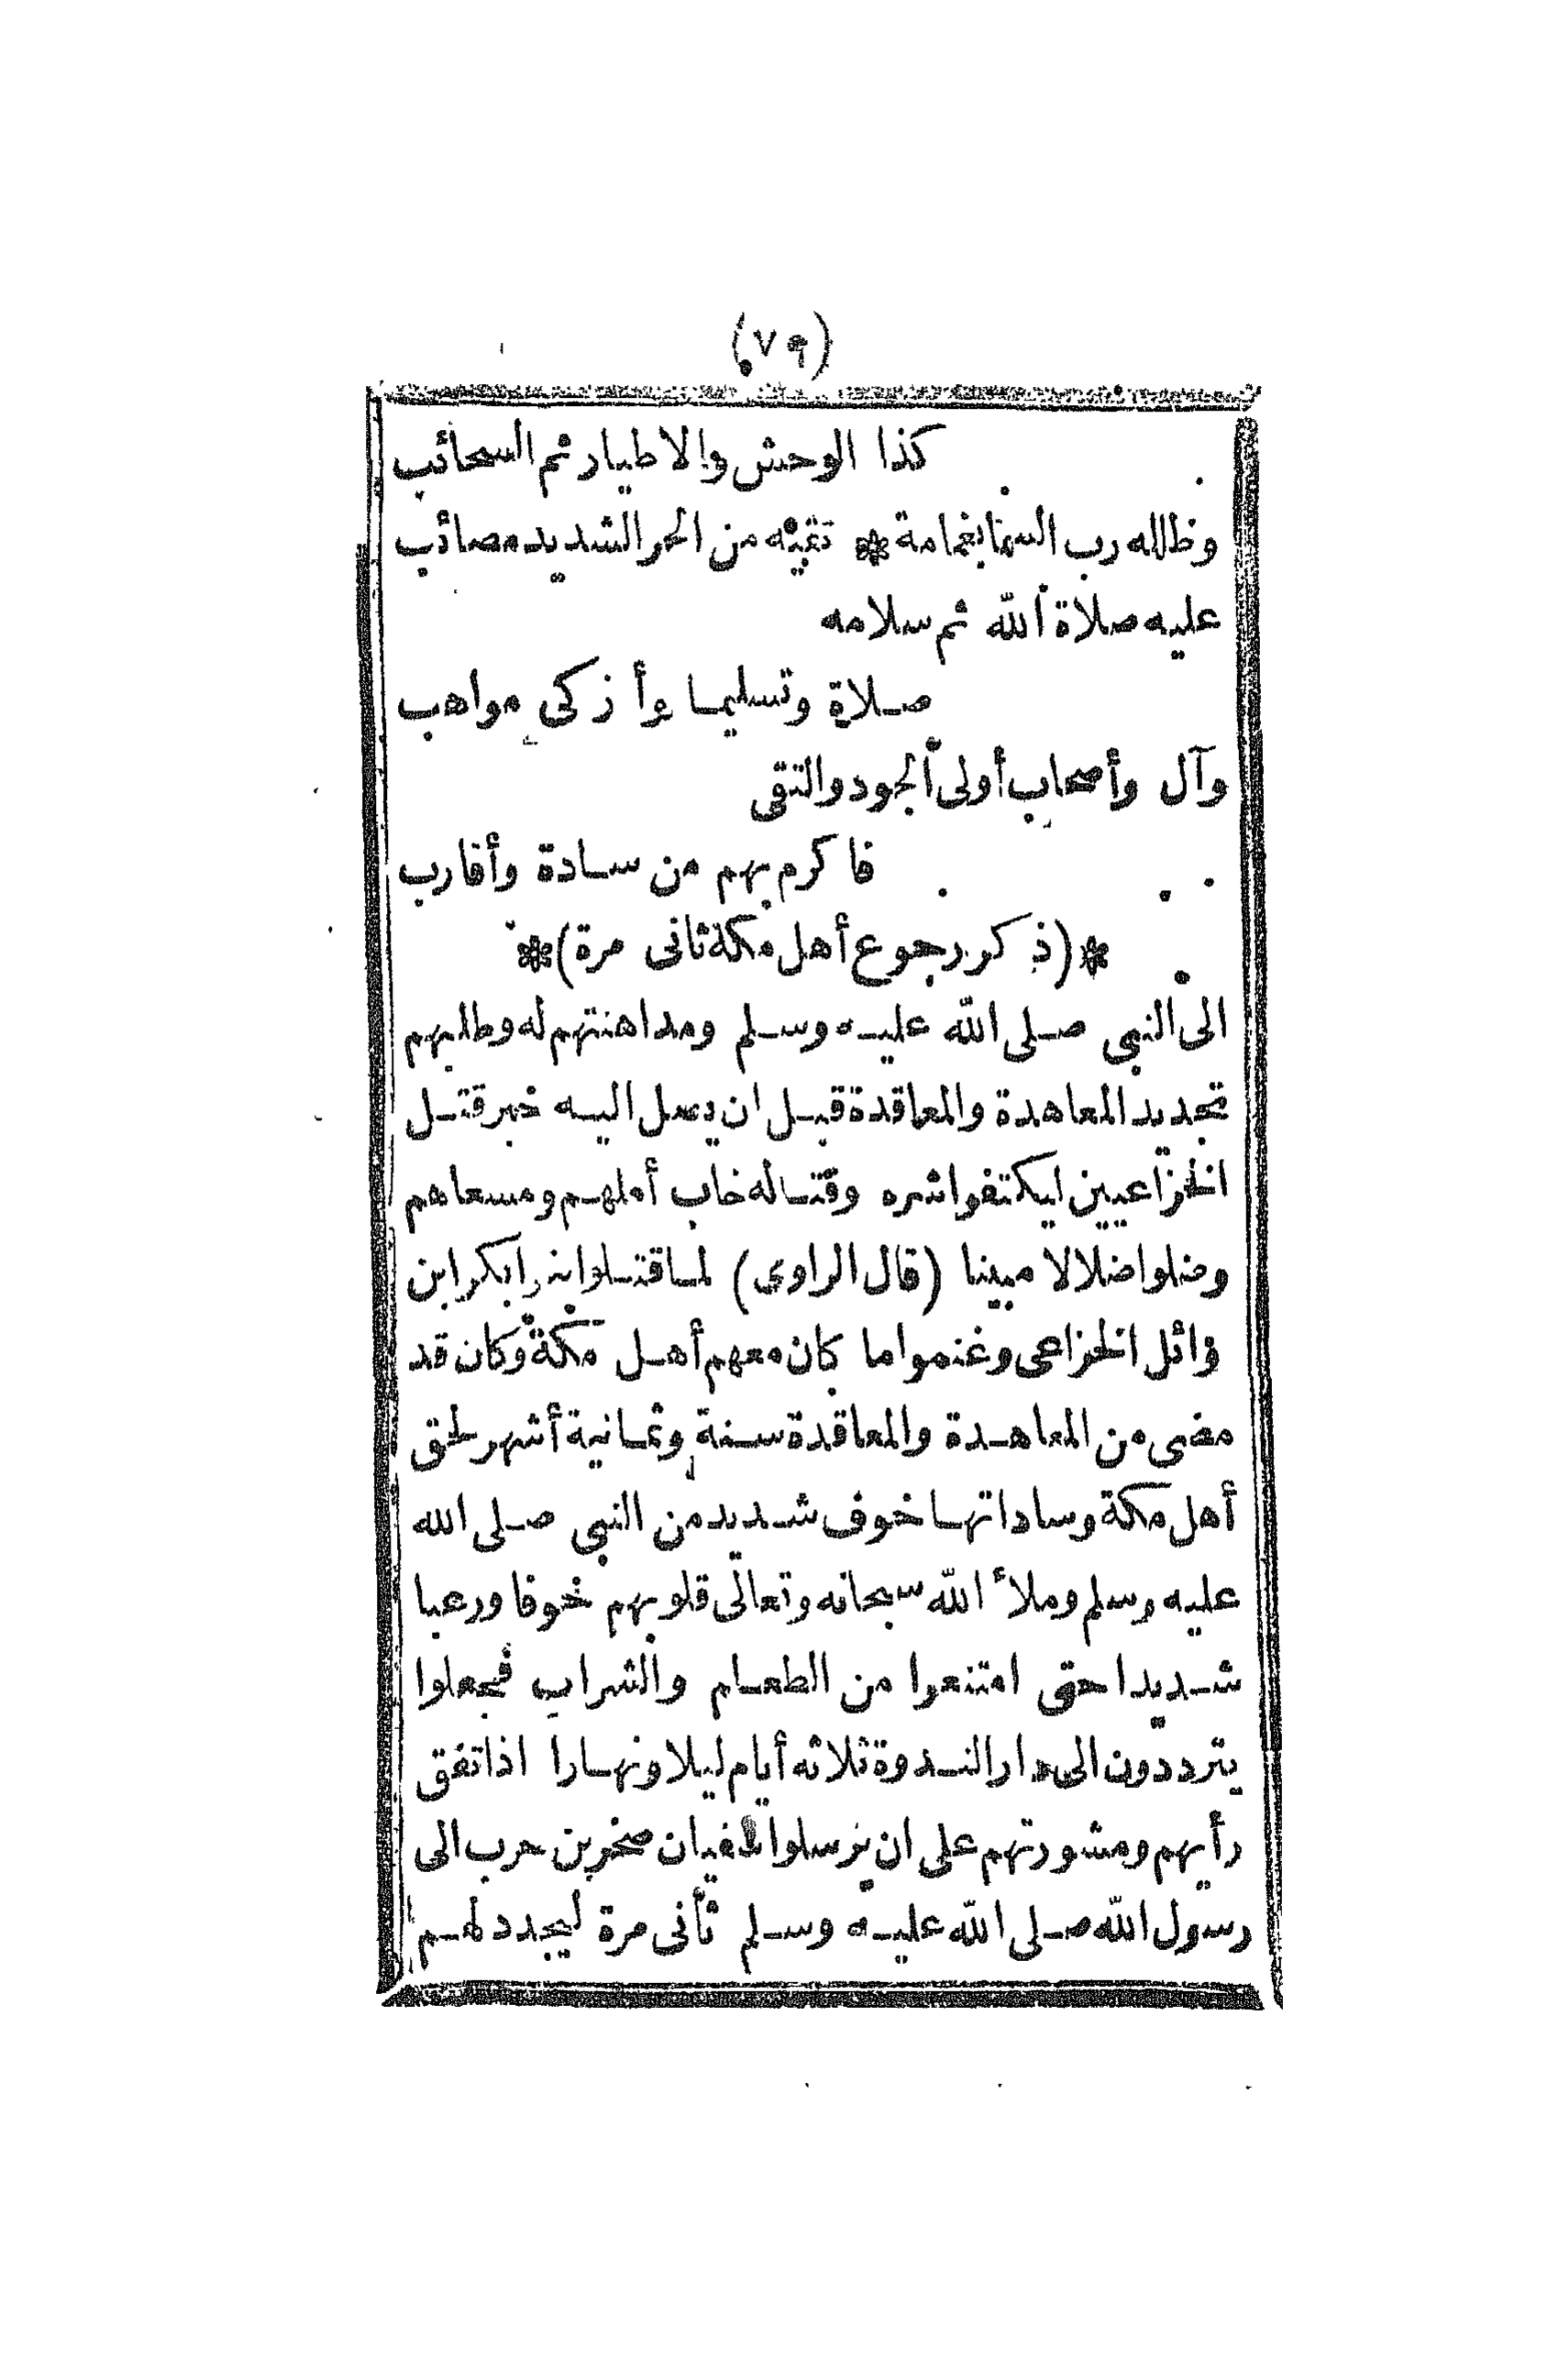 (٧٩)
كذا الوحش والاطيار ثم السحائب
وظلله رب السما بغمامة * تقيه من الحر الشديد مصائب
عليه صلاة الله ثم سلامه
صلاة وتسليما وأزكى مواهب
وآل وأصحاب أولى الجود والتقى
فاكرم بهم من سادة وأقارب
*(ذكر رجوع أهل مكة ثانى مرة)*
الى النبى صلى الله عليه وسلم ومداهنتهم له وطلبهم
تجديد المعاهدة والمعاقدة قبل ان يصل اليه خبر قتل
الخزاعيين ليكتفوا شره وقتاله خاب أملهم ومسعاهم
وضلوا ضلالا مبينا (قال الراوى) لما قتلوا بكر ابن
وائل الخزاعى وغنموا ما كان معهم أهل مكة وكان قد
مضى من المعاهدة والمعاقدة سنة وثمانية أشهر لحق
أهل مكة وساداتها خوف شديد من النبى صلى الله
عليه وسلم وملأ الله سبحانه وتعالى قلوبهم خوفا ورعبا
شديدا حتى امتنعوا من الطعام والشراب فجعلوا
يترددون الى دار الندوة ثلاثه أيام ليلا ونهارا اذا تفق
رأيهم ومشورتهم على ان يرسلوا صخر بن حرب الى
رسول الله صلى الله عليه وسلم ثانى مرة ليجدد لهم